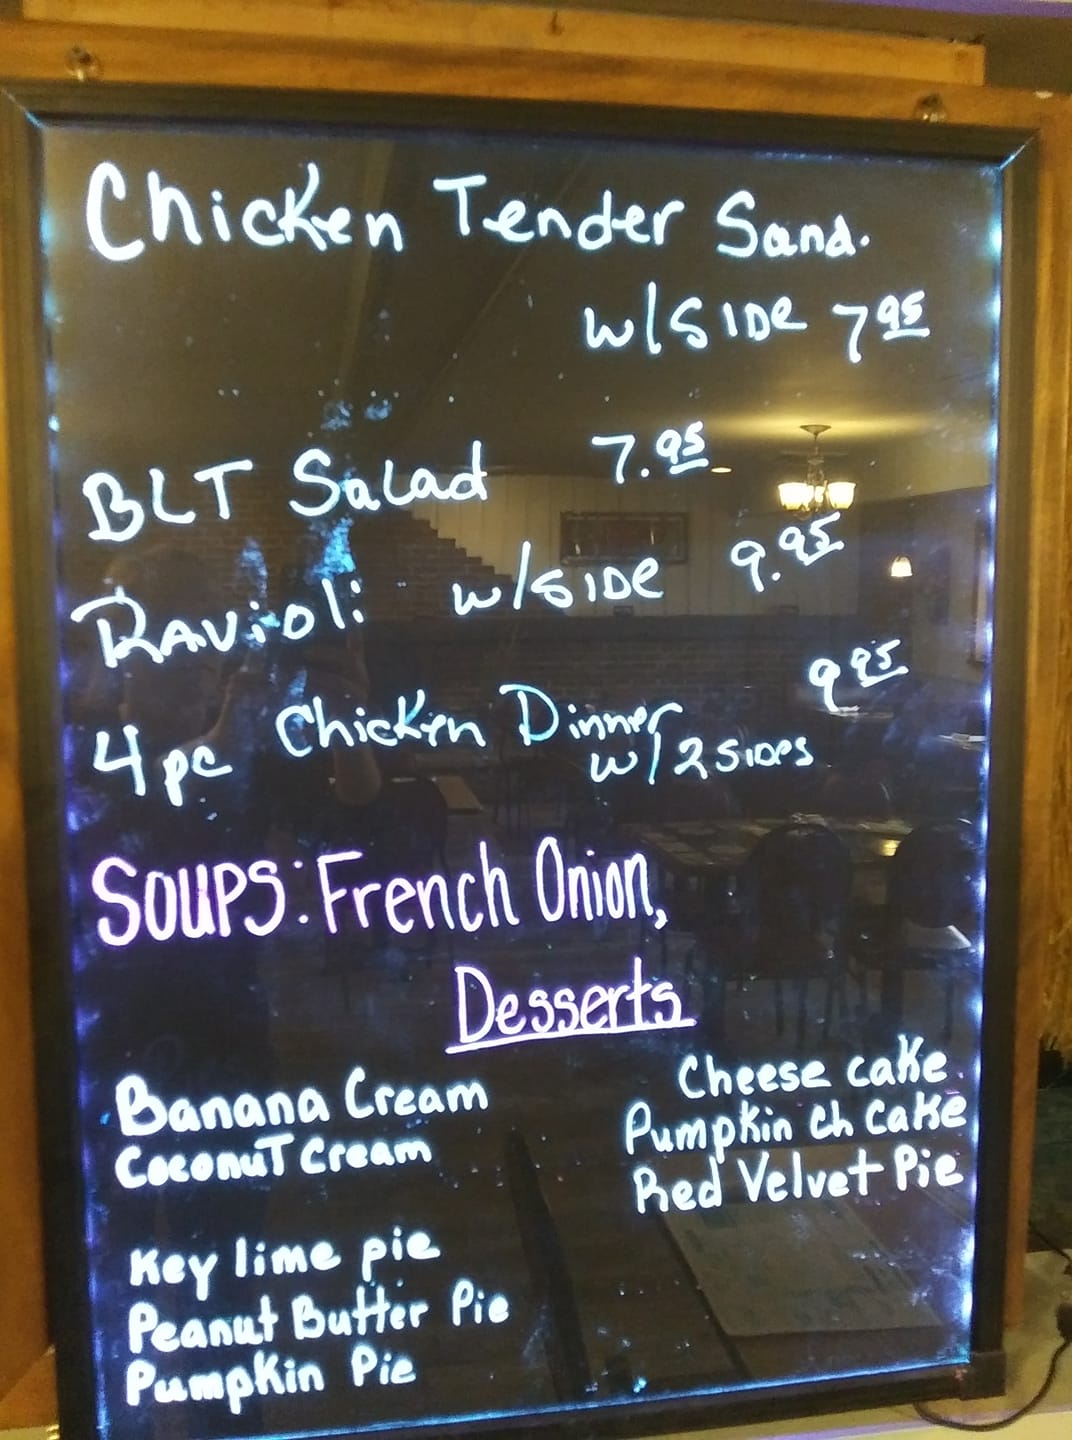 Chicken Tender Sand.
w/SIDe 7 95
BLT Salad 7.95
Ravioli w/SIDe 9.95
4pc Chicken Dinner 9 95
w/2 SIDes
SOUPS: French Onion,
Desserts
Banana Cream
CoconuT Cream
Key lime pie
Peanut Butter Pie
Pumpkin Pie
Cheese cake
Pumpkin Ch Cake
Red Velvet Pie